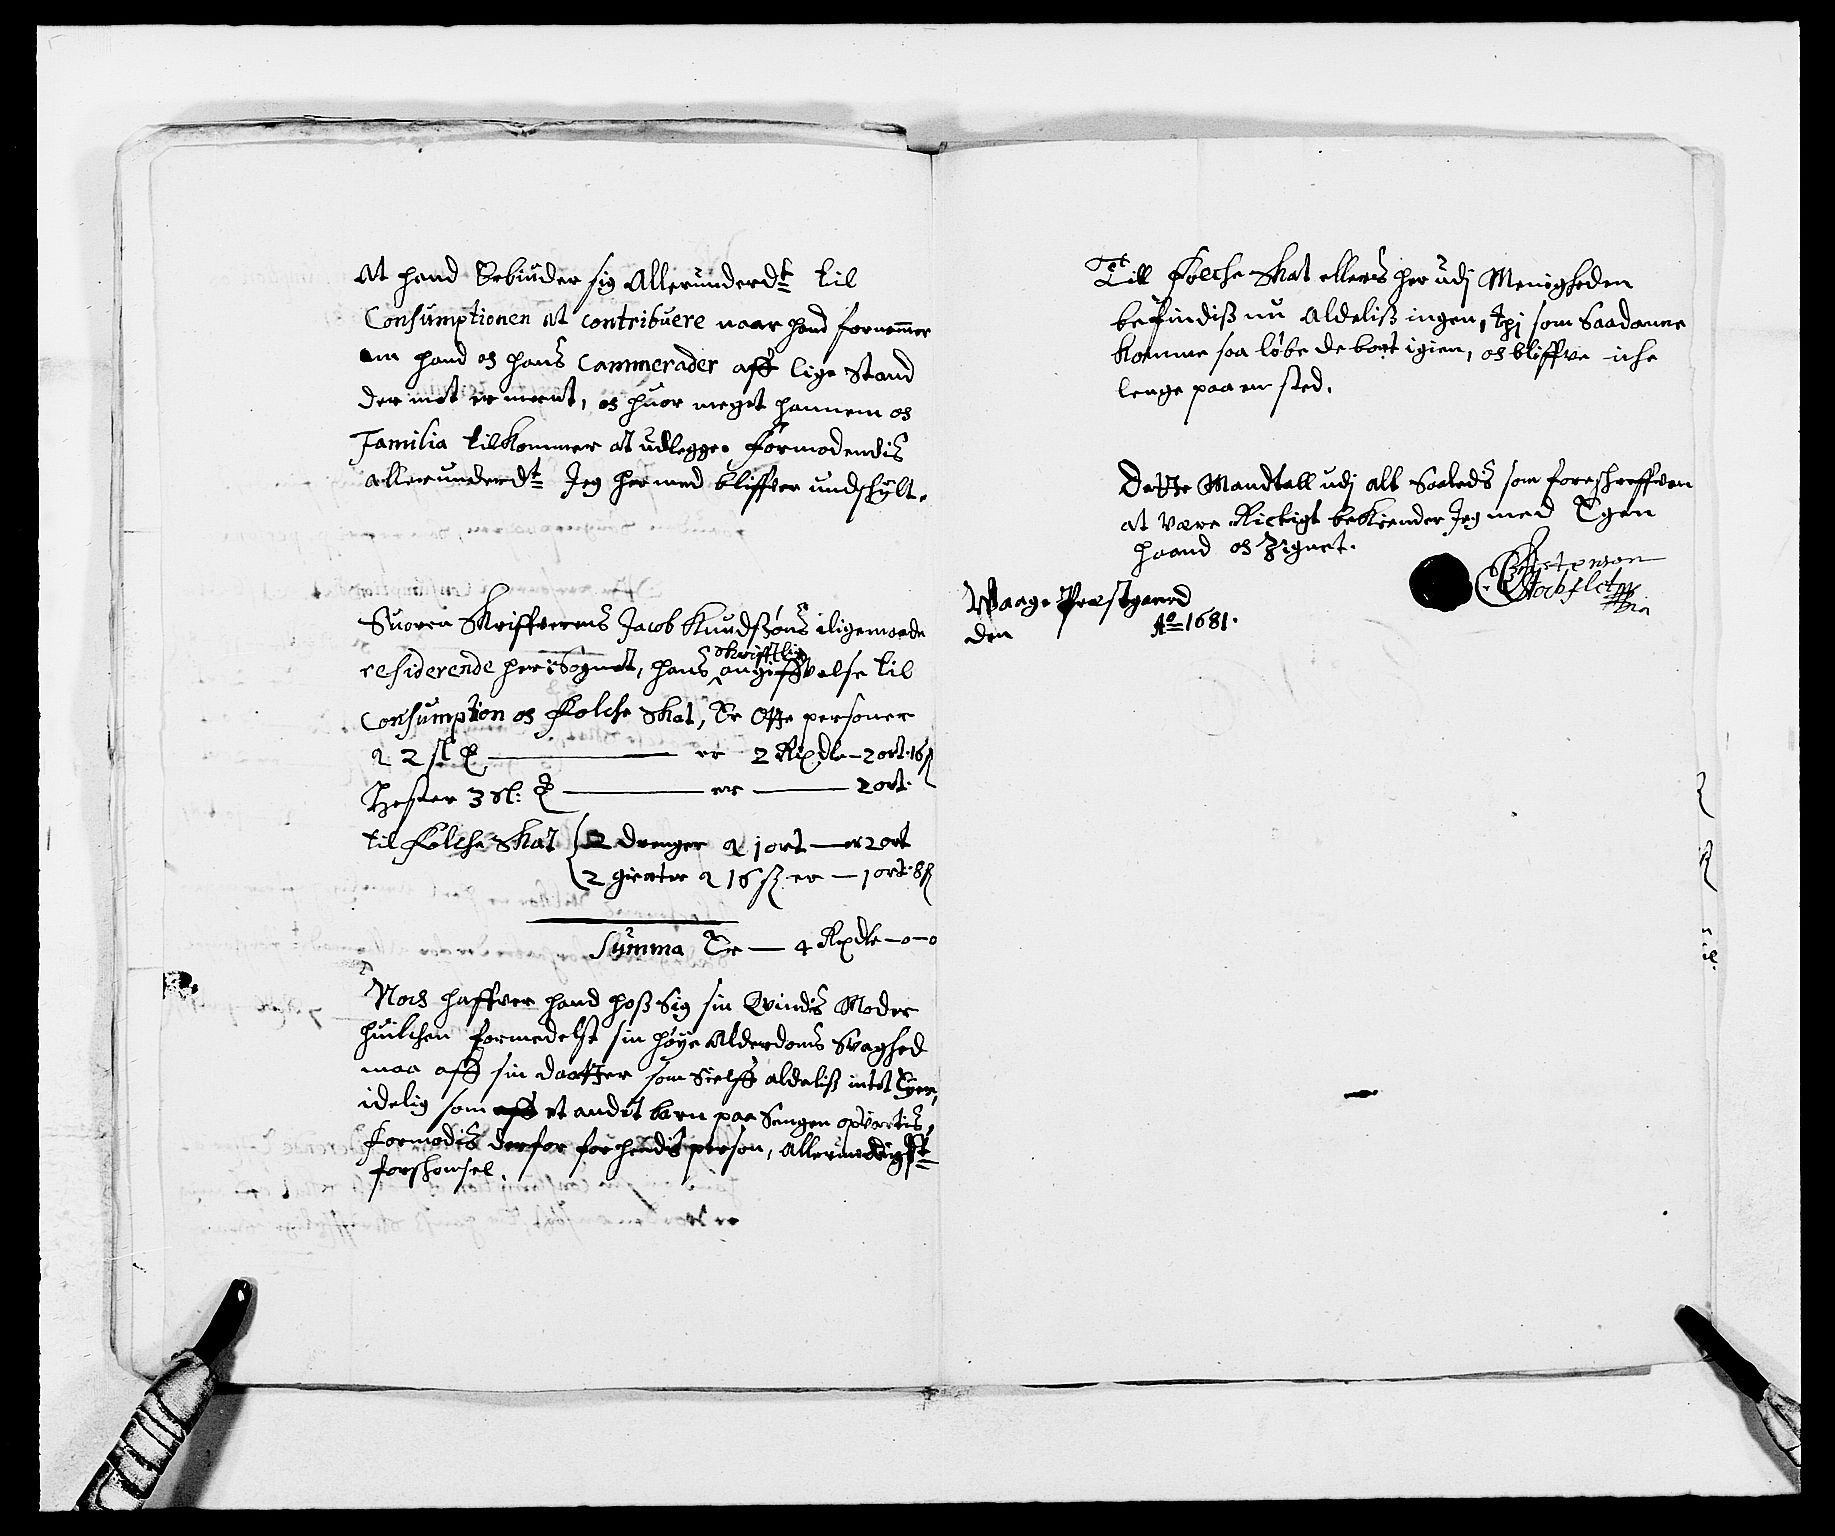 At hand Erbiuder sig Allerunderdt til
Consumptionen at contribuere naar hand fornemmer
om hand og hans Cammerader aff lige Stand
der mot er ment, og huor meget hannem og
Familia tilkommer at udlegge. Formodendis
allerunderdt Jeg hermed bliffver undskylt.
Suoren Skriffverens Jacob Knudsøns iligemaade
residerende her i Sognet, hans skrifftlig angiffvelse til
Consumption og Folche Skat, Er Otte personer
a 2 sl ℔ — er 2 Rixdlr – 2 ort. 16 ß
Hester 3 sl: ℔ — er — 2 ort.
til Folche Skat 2 drenger a 1 ort — er 2 ort
2 gienter a 16 ß er — 1 ort. 8 ß
Summa Er — 4 Rixdlr – 0 – 0
Noch haffver hand hoß Sig sin Qvindis Moder
huilchen formedelst sin høye Alderdoms Svaghed
maa aff sin daatter som Sielff aldeliß intet Eyer,
idelig som aff et andet barn paa Sengen opvartis,
Formodis derfor for hendis person, Allernaadigste
forskonsel.
Till Folche Skat ellers her udj Menigheden
befindiß nu aldeliß ingen, thj som Saadanne
komme saa løbe de bort igien, og bliffve iche
lenge paa en sted.
Dette Mandtall udj alt Saaleds som foreskreffven
at være Richtigt bekiender Jeg med Egen
haand og Zignet.
Waage Præstgaard
den Ao 1681.
Stochfleth